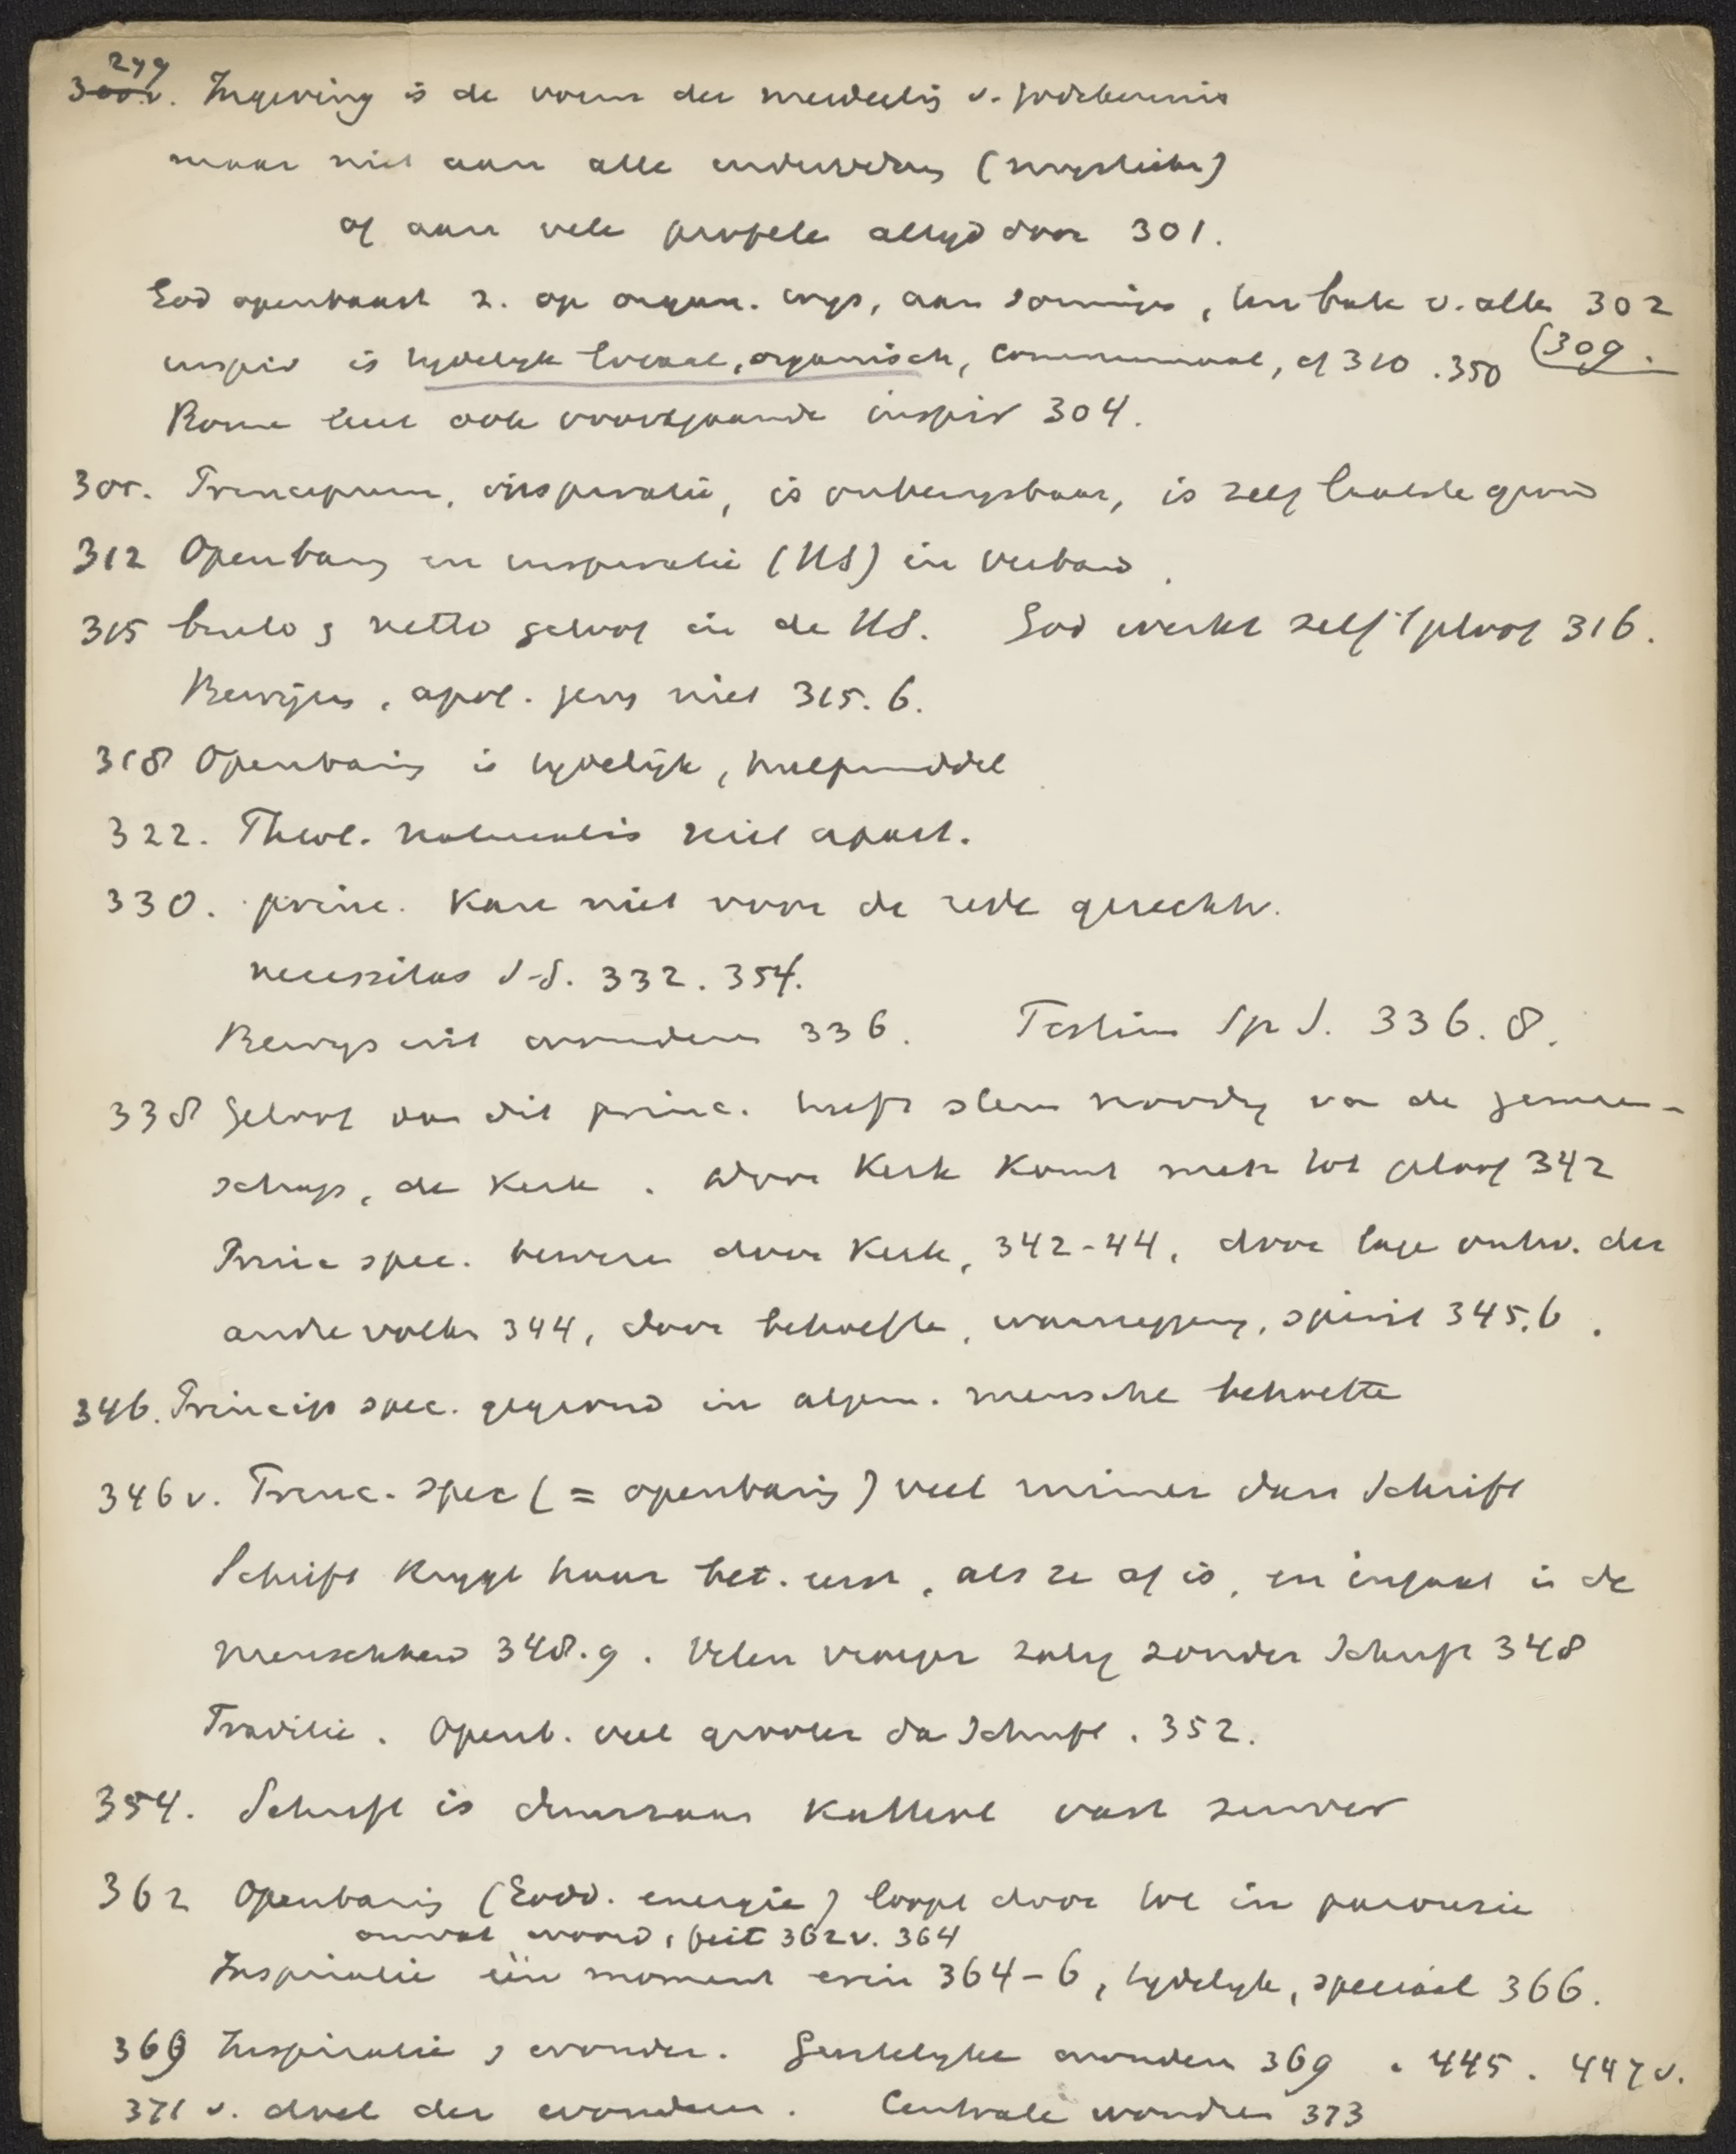 299
300v. Ingeving is de vorm der mededeelg v. godskennis
maar niet aan alle individuen (mystiek)
of aan vele profeten altijd door 301.
God openbaart z. op organ. wijs, aan sommigen, ten bate v. allen 302
inspir is tydelyk locaal, organisch, communaal, cf 310 . 350 (309.
Rome leert ook voortgaande inspir 304.
305. Principium, inspiratie, is onbewysbaar, is zelf laatste grond
312 Openbarg en inspiratie (HS) in verband.
315 bruto & netto geloof in de HS. God werkt zelf 't geloof 316.
Bewijzen, apol. geven niet 315. 6.
318 Openbaring is tydelijk, hulpmiddel
322. Theol. naturalis niet apart.
330. princ. kan niet voor de rede gerechtv.
necessitas S.S. 332. 354.
Bewys uit wonderen 336. Testim Sp S. 336. 8.
338 Geloof aan dit princ. heeft steun noodig van de gemeen-
schap, de Kerk. Door Kerk komt men tot geloof 342
Princ spec. bewezen door Kerk, 342-44, door lage ontw. der
andre volken 344, door behoefte, waarzeggerij, spirit 345.6.
346. Princip spec. gegrond in algem. mensche behoefte
346v. Princ. spec (= openbaring) veel ruimer dan Schrift
Schrift krygt haar bet. eerst, als ze af is, en ingaat in de
menschheid 348.9. Velen vroeger zalig zonder Schrift 348
Traditie. Openb. veel grooter dan Schrift. 352.
354. Schrift is duurzaam katholiek vast zuiver
362 Openbaring (Godd. energie) loopt door tot in parousie
omvat woord, feit 362v. 364
Inspiratie één moment erin 364-6, tydelyk, speciaal 366.
369 Inspiratie & wonder. Geestelyke wonderen 369 . 445. 447v.
371 v. doel der wonderen. Centrale wonder 373